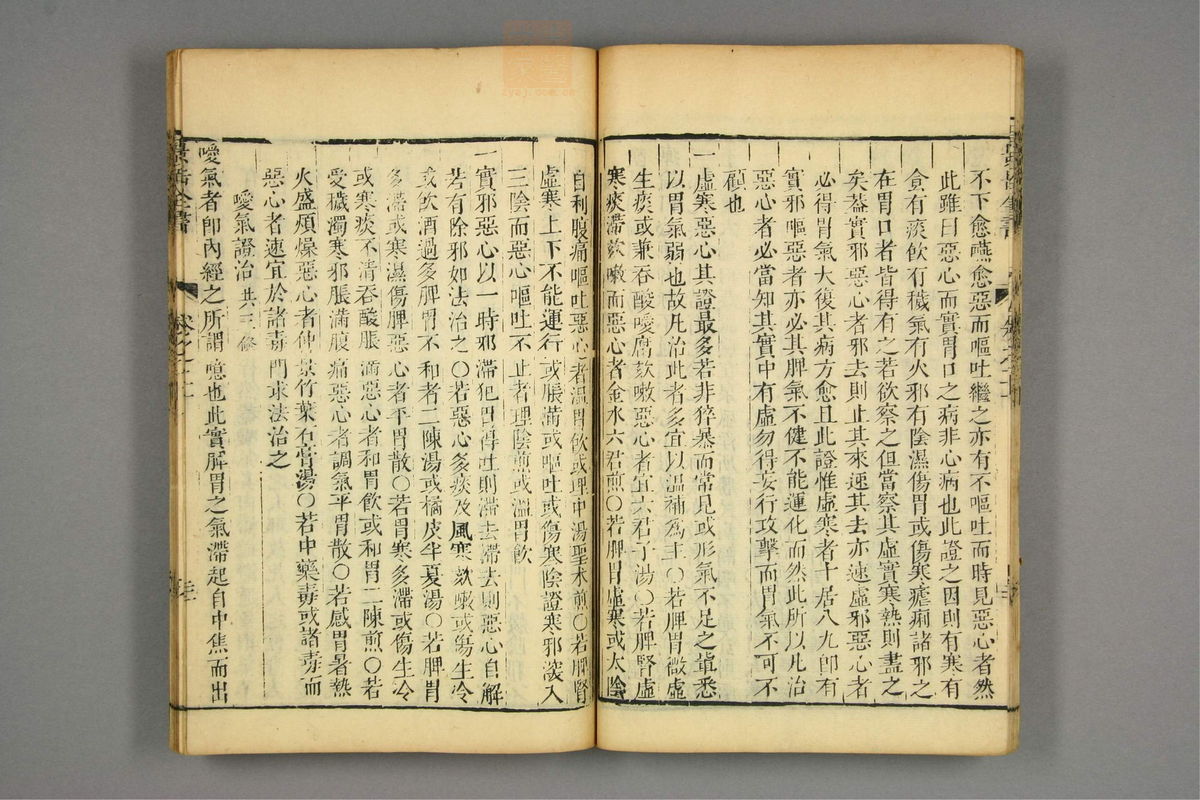 不下愈嚥愈惡而嘔吐繼之亦有不嘔吐而時見惡心者然
此雖曰惡心而實胃口之病非心病也此證之因則有寒有
食有痰飲有穢氣有火邪有陰濕傷胃或傷寒瘧痢諸邪之
在胃口者皆得有之若欲察之但當察其虛實寒熱則盡之
矣葢實邪惡心者邪去則止其來速其去亦速虛邪惡心者
必得胃氣大復其病方愈且此證惟虛寒者十居八九卽有
實邪嘔惡者亦必其脾氣不健不能運化而然此所以凡治
惡心者必當知其實中有虛勿得妄行攻擊而胃氣不可不
顧也
一虛寒惡心其證最多若非猝暴而常見或形氣不足之軰悉
以胃氣弱也故凡治此者多宜以溫補為主○若脾胃微虛
生痰或兼吞酸噯腐欬嗽惡心者宜六君子湯○若脾腎虛
寒痰滯欬嗽而惡心者金水六君煎○若脾胃虛寒或太陰
自利腹痛嘔吐惡心者溫胃飲或理中湯聖术煎○若脾腎
虛寒上下不能運行或脹滿或嘔吐或傷寒陰證寒邪深入
三陰而惡心嘔吐不止者理陰煎或溫胃飲
一實邪惡心以一時邪滯犯胃得吐則滯去滯去則惡心自解
若有除邪如法治之○若惡心多痰及風寒欬嗽或傷生冷
或飲酒過多脾胃不和者二陳湯或橘皮半夏湯○若脾胃
多滯或寒濕傷脾惡心者平胃散○若胃寒多滯或傷生冷
或寒痰不清吞酸脹滿惡心者和胃飲或和胃二陳煎○若
受穢濁寒邪脹滿腹痛惡心者調氣平胃散○若感胃暑熱
火盛煩燥惡心者仲景竹葉石膏湯○若中藥毒或諸毒而
惡心者速宜於諸毒門求法治之
噯氣證治 共三條
噯氣者卽內經之所謂噫也此實脾胃之氣滯起自中焦而出
景岳全書